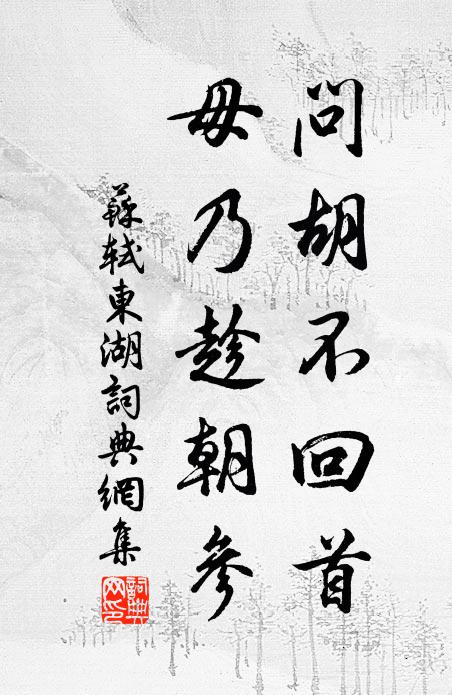 問胡不回首
毋乃趁朝參
蘇軾東湖詞典網集
詞典网印